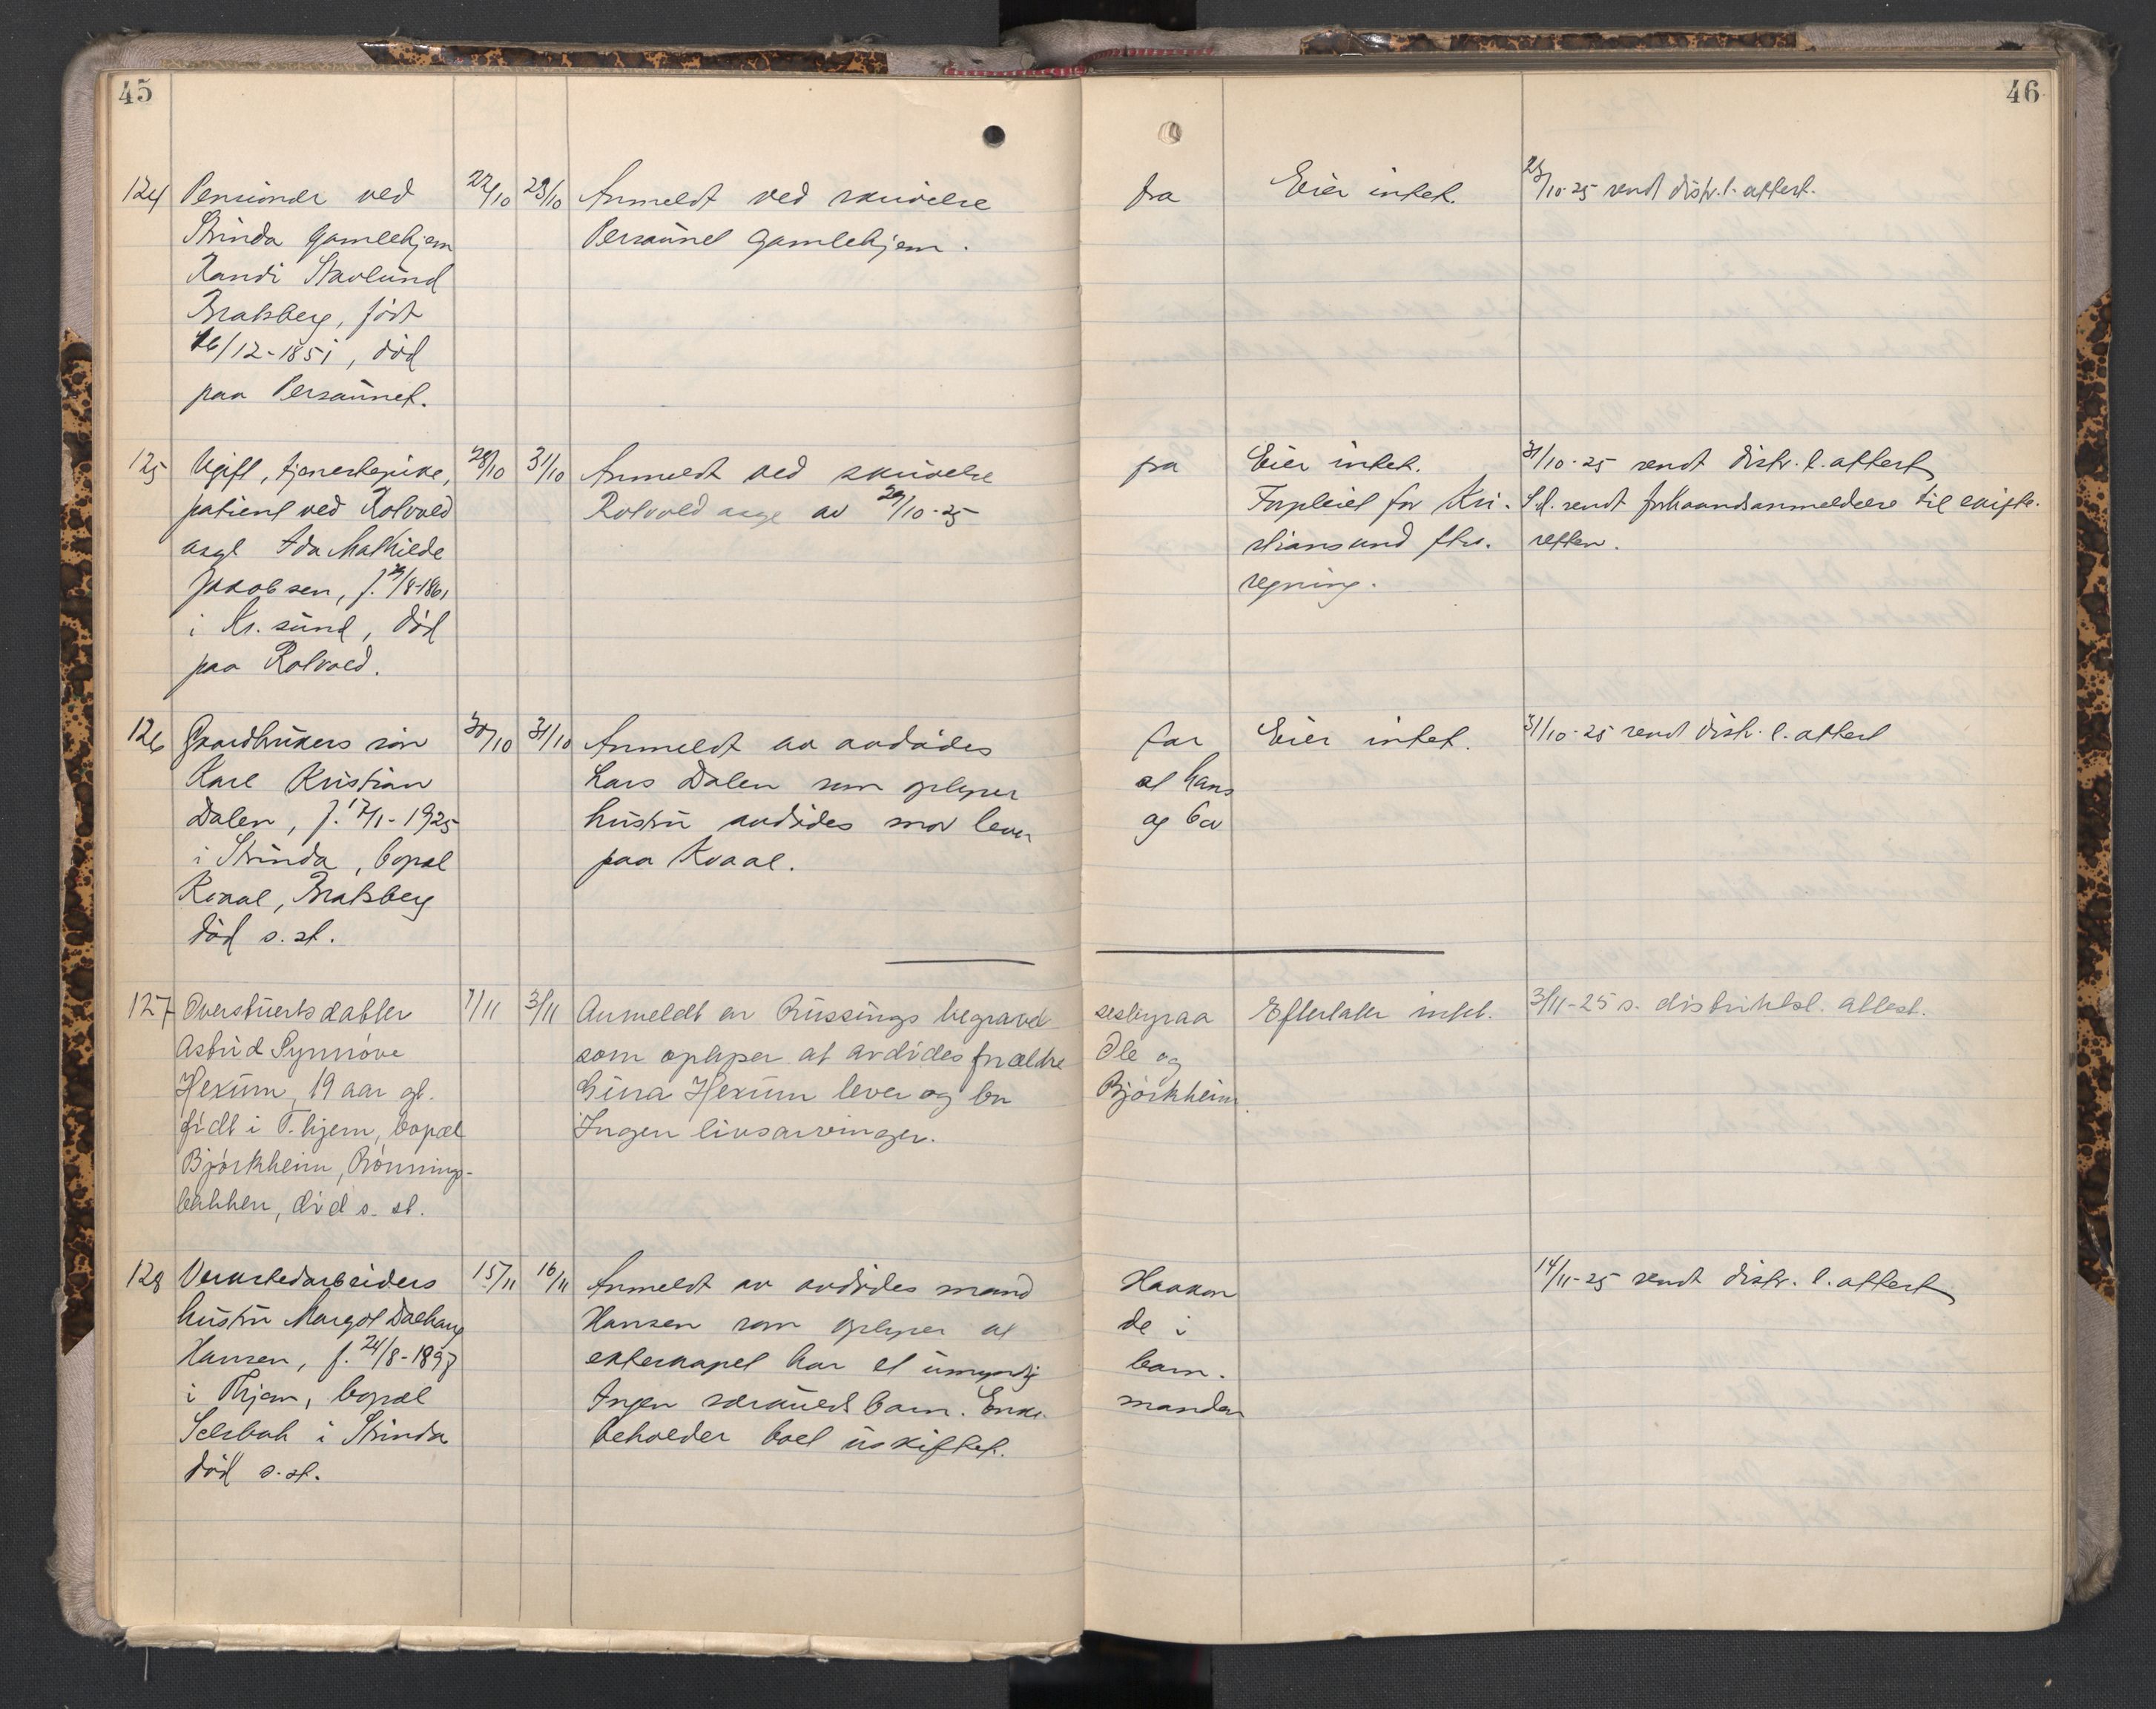 45
46
124 Pensionær ved 22/10 23/10 Anmeldt ved skrivelse fra Eier intet. 23/10-25 sendt distr.l. attest.
Strinda gamlehjem Persaunet gamlehjem.
Randi Stavlund
Bratsberg, født
16/12-1851, død
paa Persaunet.
125 Ugift, tjenestepike, 28/10 31/10 Anmeldt ved skrivelse fra Eier intet. 31/10-25 sendt distr. l. attest
patient ved Rotvold Rotvold asyl av 29/10-25 Forpleiet for Kri- S.d. sendt forhaandsanmeldelse til skifte-
asyl Ida Mathilde stiansund fkr. retten.
Jakobsen, f. /8-1861 regning.
i Kr.sund, død
paa Rotvold.
126 Gaardbrukers søn 30/10 31/10 Anmeldt av avdødes far Eier intet. 31/10-25 sendt distr. l. attest
Karl Kristian Lars Dalen som oplyser at hans
Dalen, f. 17/1-1925 hustru avdødes mor lever og bor
i Strinda, bopæl paa Kvaal.
Kvaal, Bratsberg
død s.st.
127 Overstuertsdatter 1/11 3/11 Anmeldt av Russings begravel sesbyraa Efterlater intet. 3/11-25 s. distriktsl. attest.
Astrid Synnøve som oplyser at avdødes forældre Ole og
Hexum, 19 aar gl. Gina Hexum lever og bor Bjørkheim.
født i T.hjem, bopæl Ingen livsarvinger.
Bjørkheim, Rønnings-
bakken, død s. st.
128 Verkstedarbeiders 15/11 16/11 Anmeldt av avdødes mand Haakon 14/11-25 sendt distr. l. attest
hustru Margot Dalhaug Hansen som oplyser at de i
Hansen, f. 24/8-1897 ekteskapet har et umyndig barn.
i Thjem, bopæl Ingen særkuldsbarn. Enke- manden
Selsbak i Strinda beholder boet uskiftet.
død s.st.